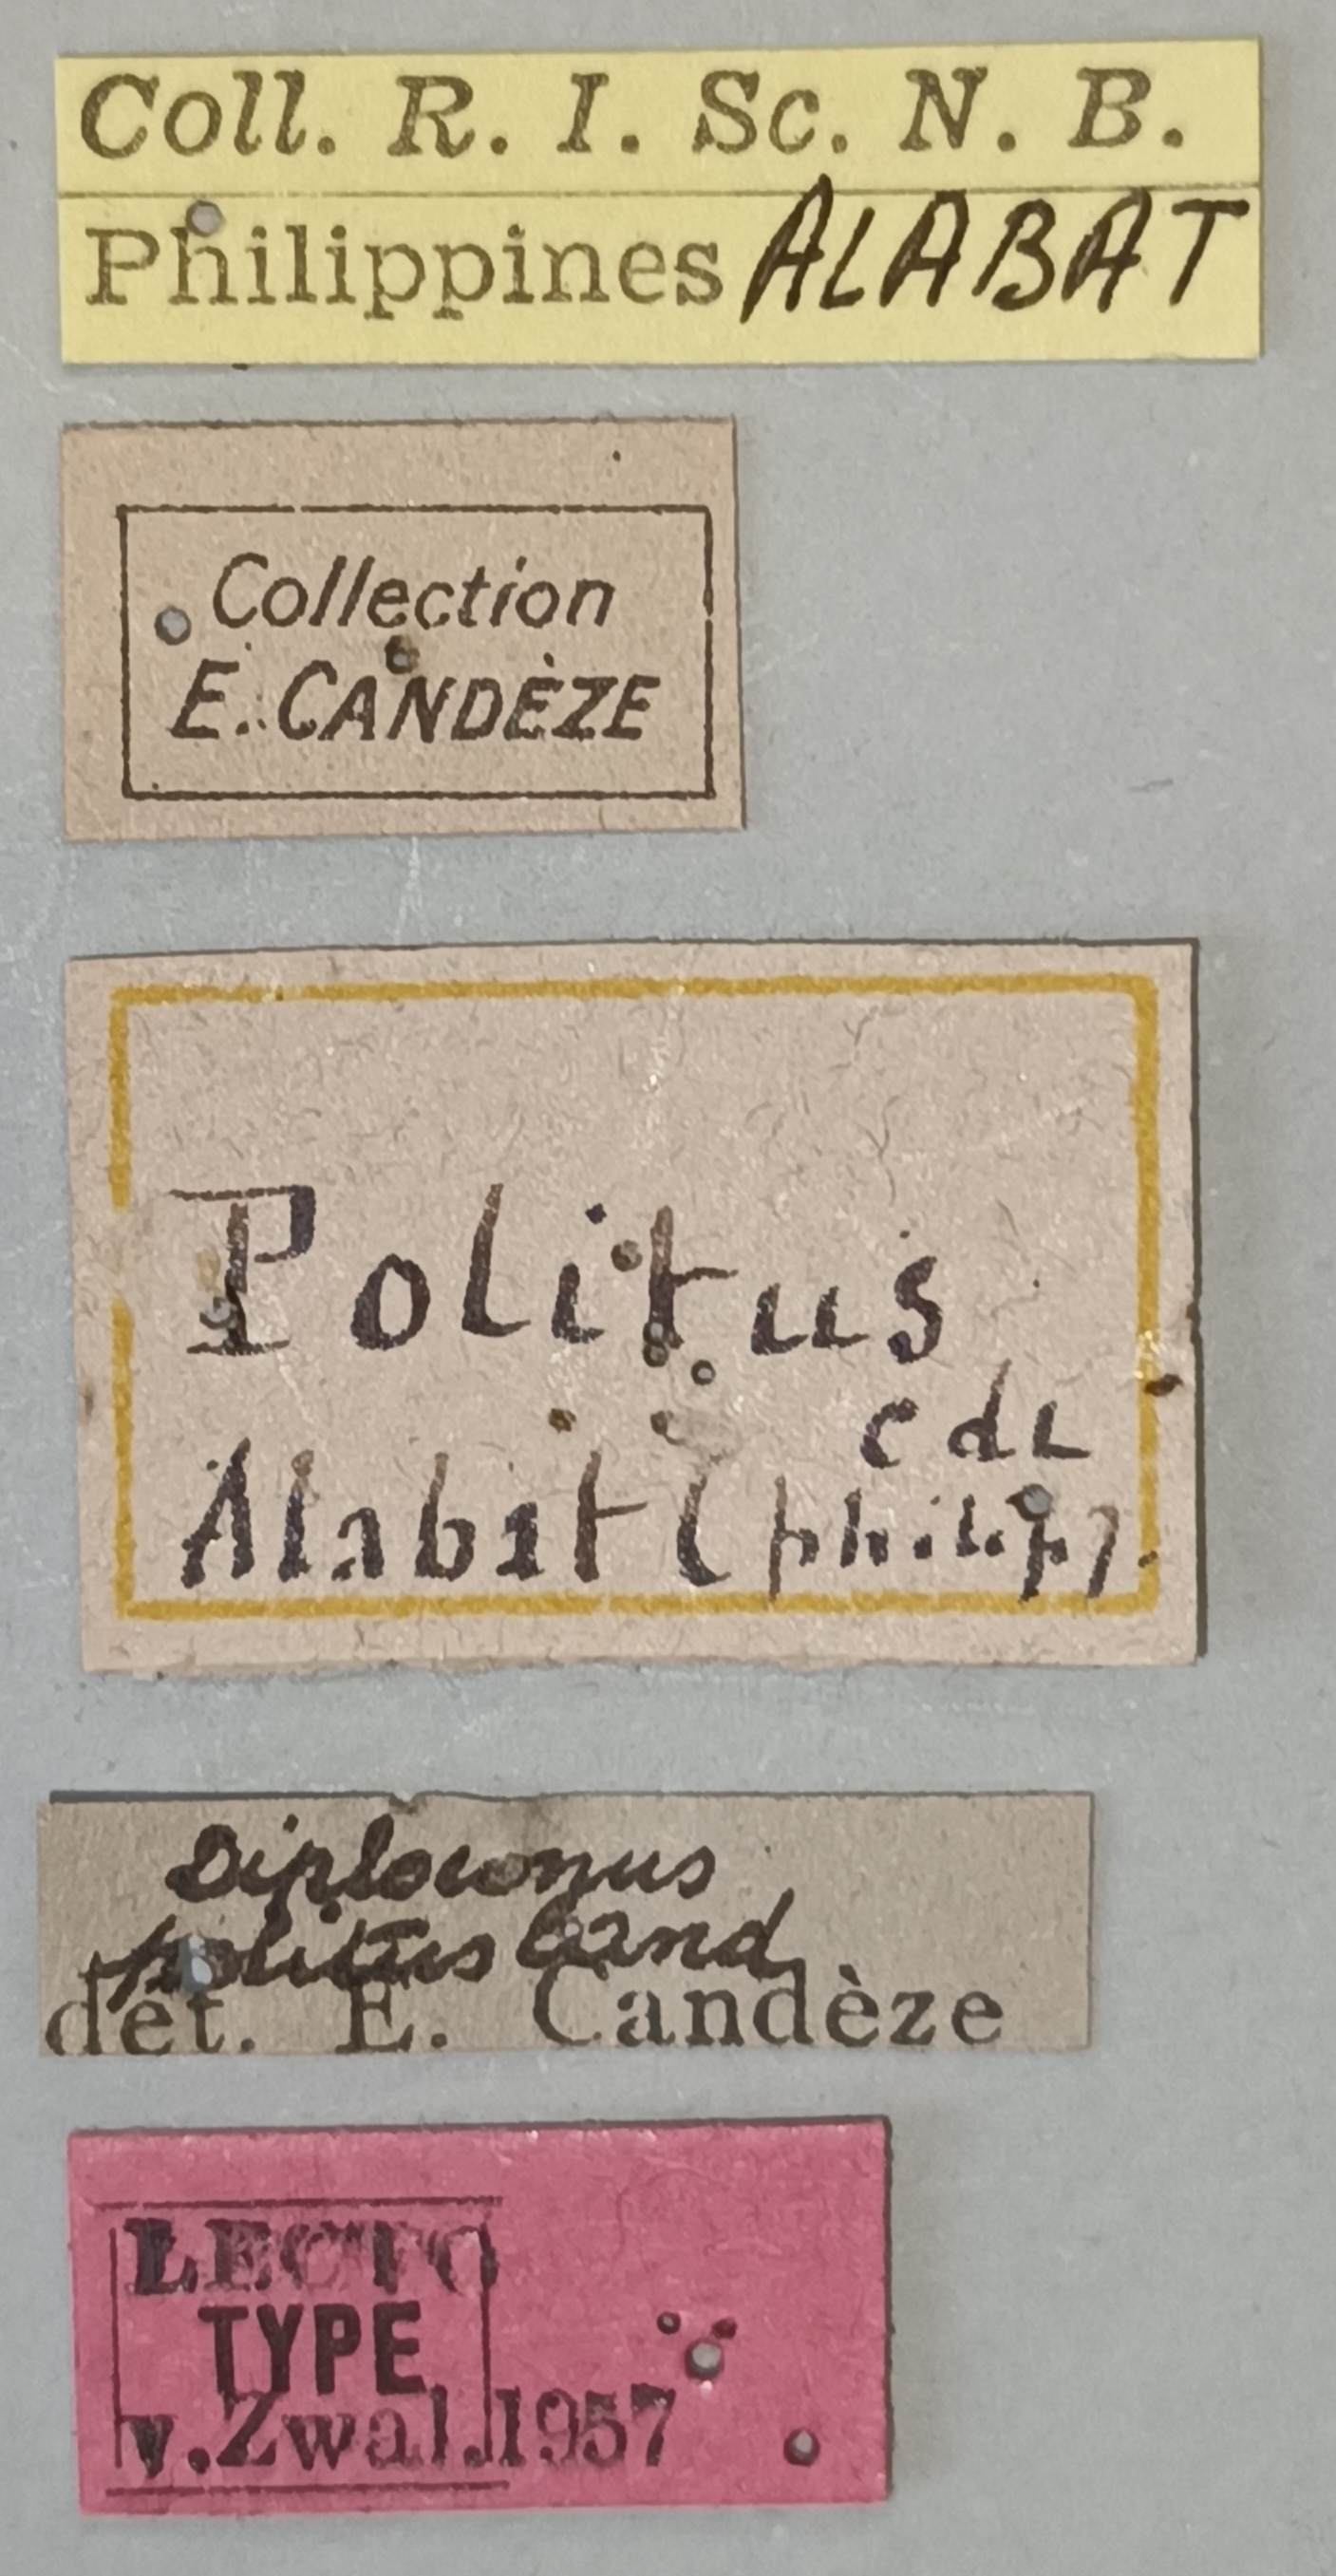 Coll. R. I. Sc. N. B.
Philippines ALABAT
Collection
E. CANDÈZE
Politus
cdz
Alabat (philipp).
Diploconus
politus Cand
det. E. Candèze
LECTO
TYPE
v.Zwal.1957